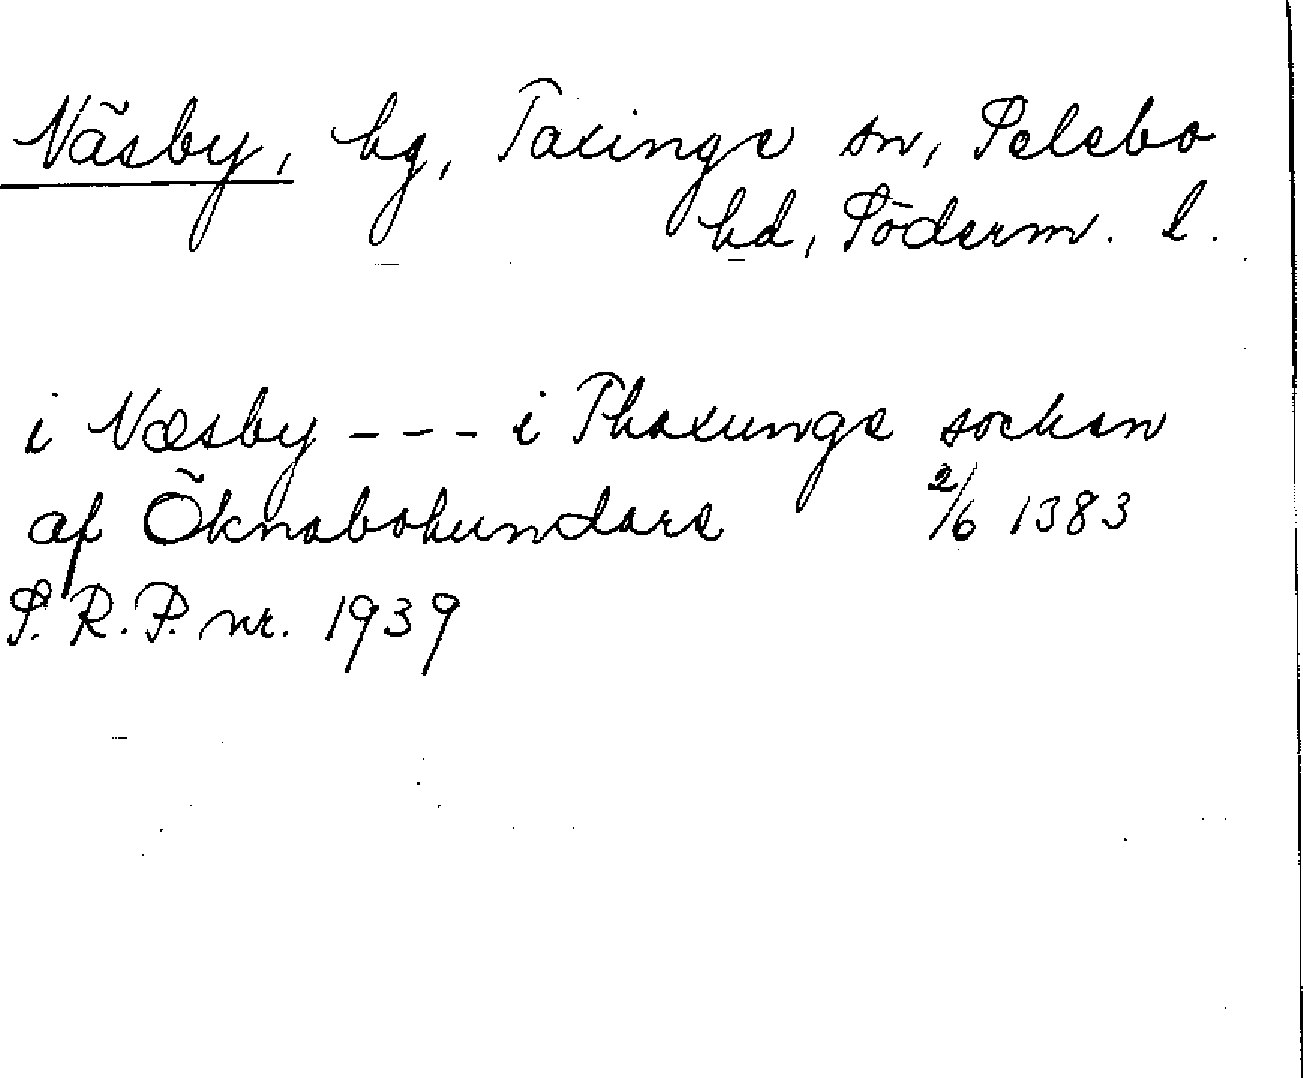 Näsby, hg, Taxinge sn, Selebo
hd, Söderm. l.
i Næsby --- i Thaxunge sockan
af Öknabohundare 2/6 1383
S.R.P. nr. 1939